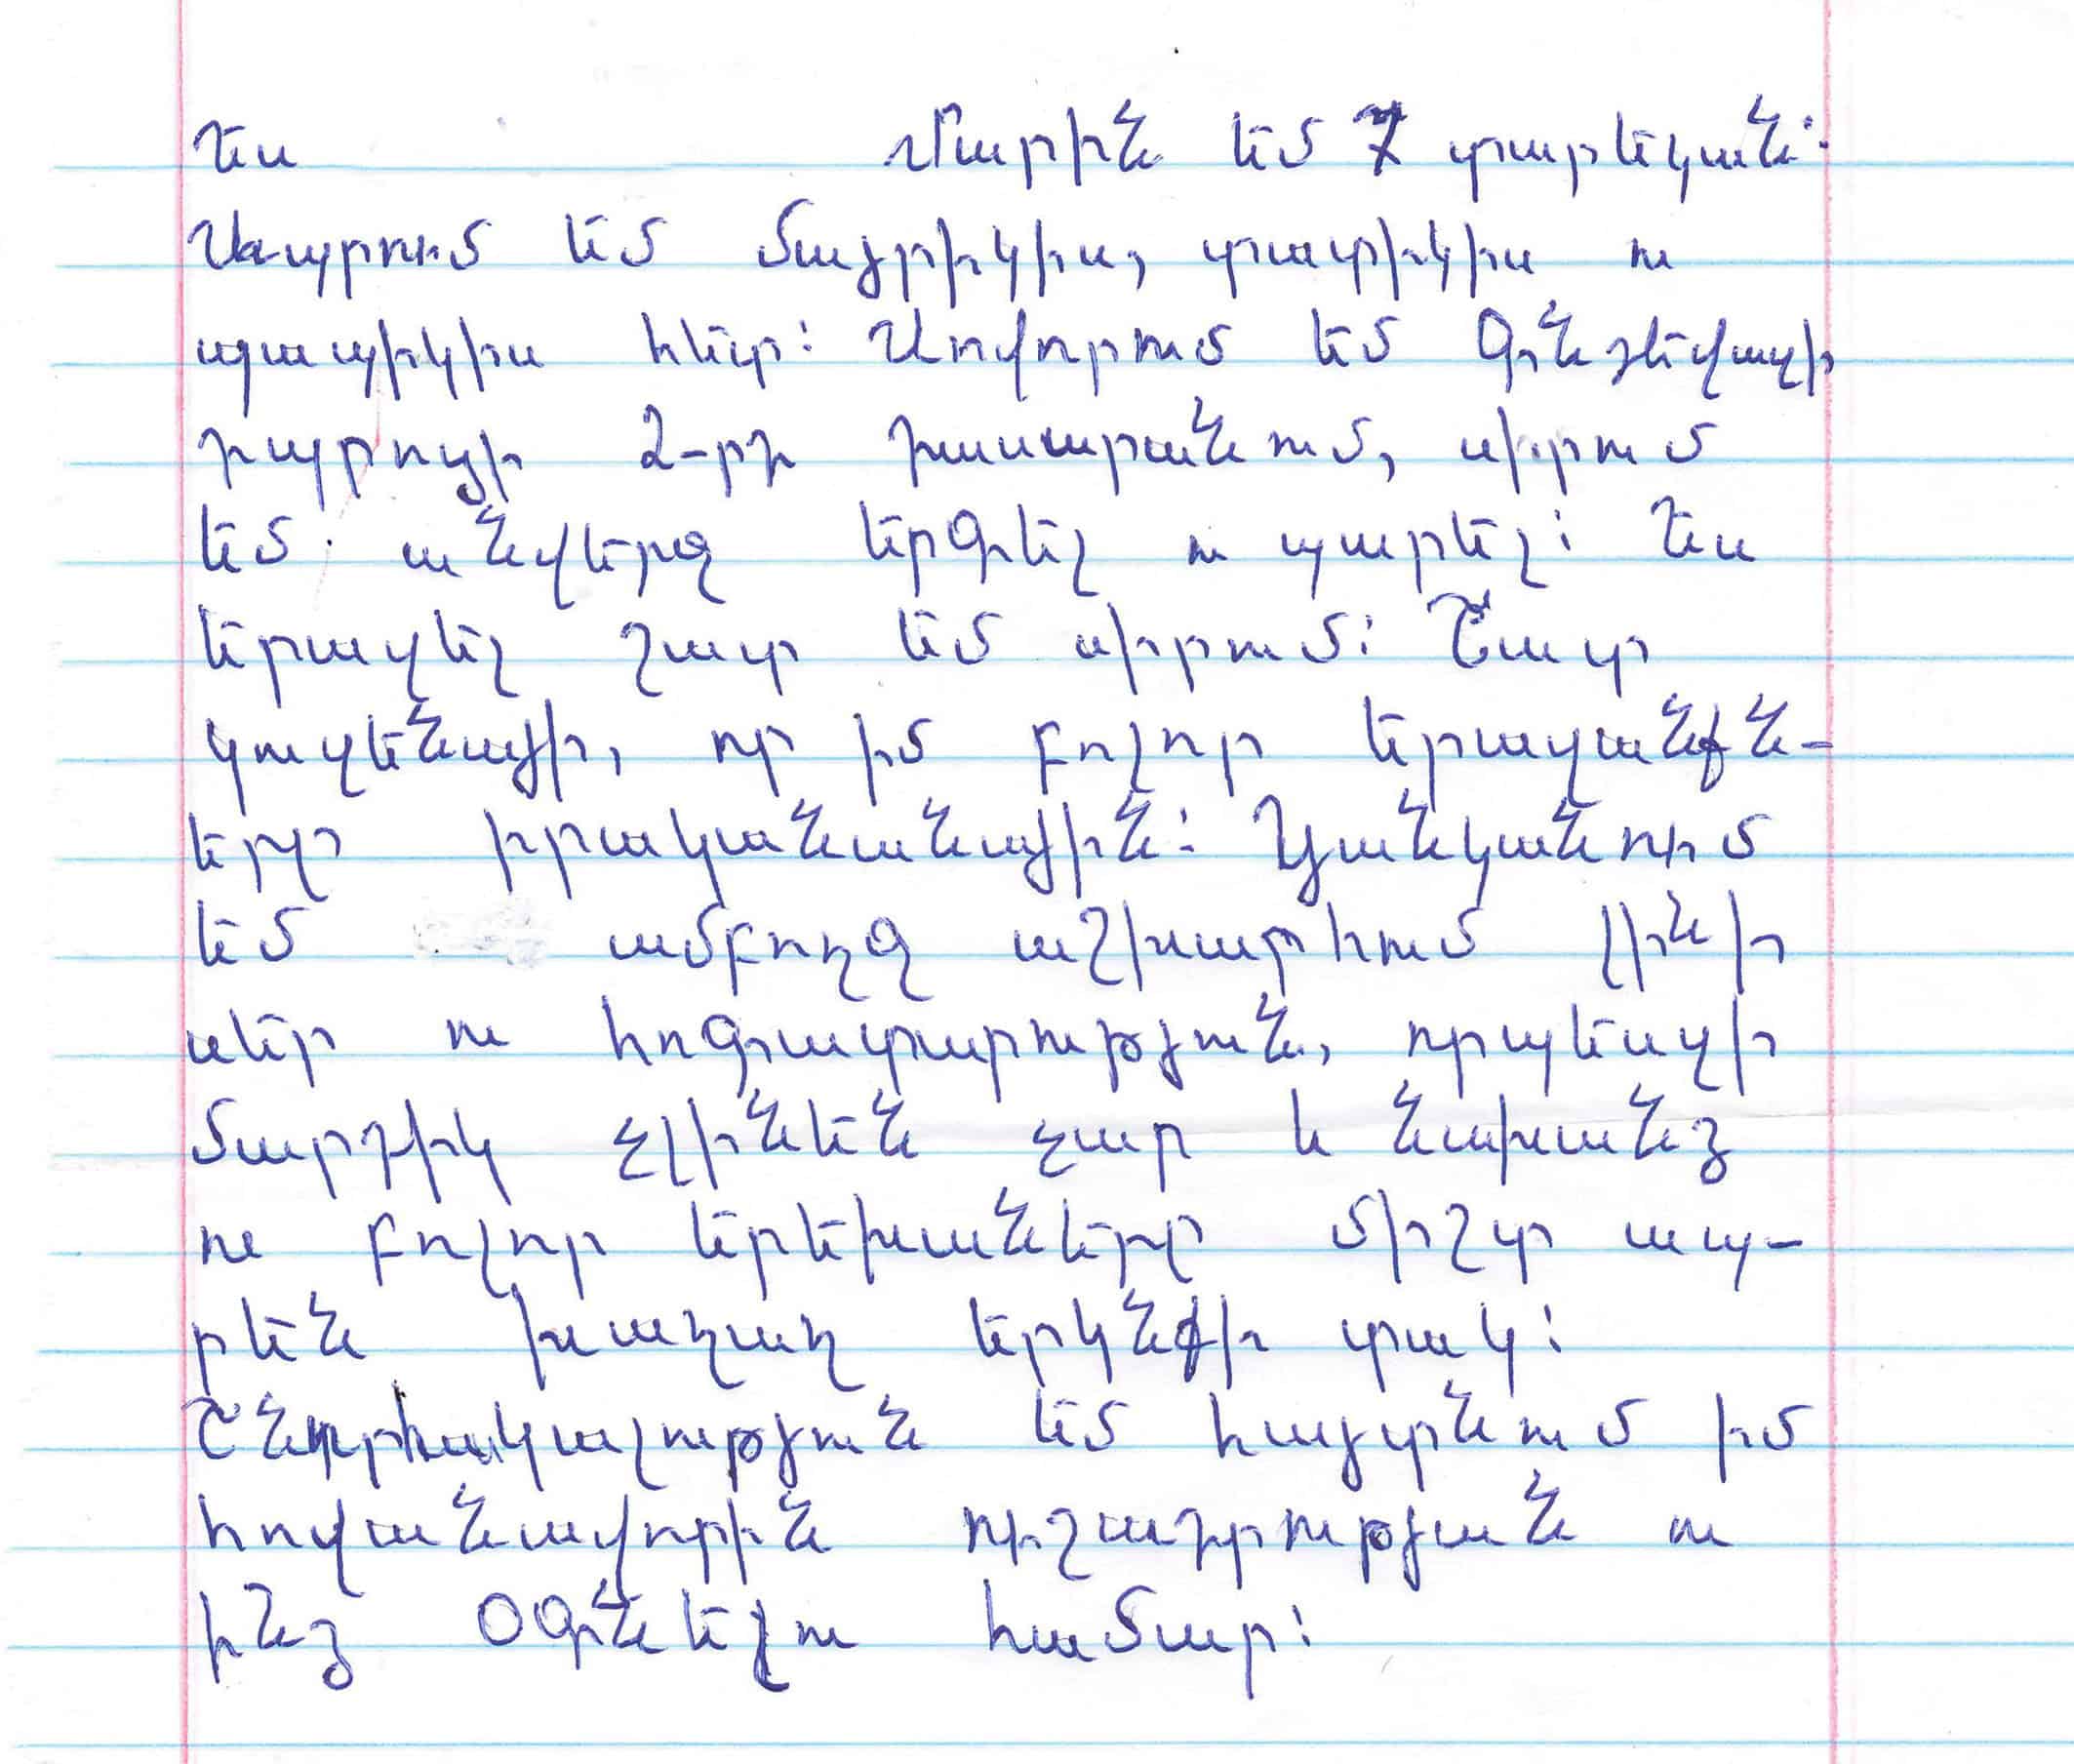 Ես Մարին եմ 7 տարեկան:
Ապրում եմ մայրիկիս, տատիկիս ու
պապիկիս հետ: Սովորում եմ Գոնչեվազի
դպրոցի 2-րդ դասարանում, սիրում
եմ անվերջ երգել ու պարել: Ես
երազել շատ եմ սիրում: Շատ
կուզենայի, որ իմ բոլոր երազանքն-
երը իրականանային: Ցանկանում
եմ ամբողջ աշխարհում լինի
սեր ու հոգատարություն, որպեսզի
մարդիկ չլինեն չար և նախանձ
ու բոլոր երեխաները միշտ ապ-
րեն խաղաղ երկնքի տակ:
Շնորհակալություն եմ հայտնում իմ
հովանավորին ուշադրության ու
ինձ օգնելու համար: